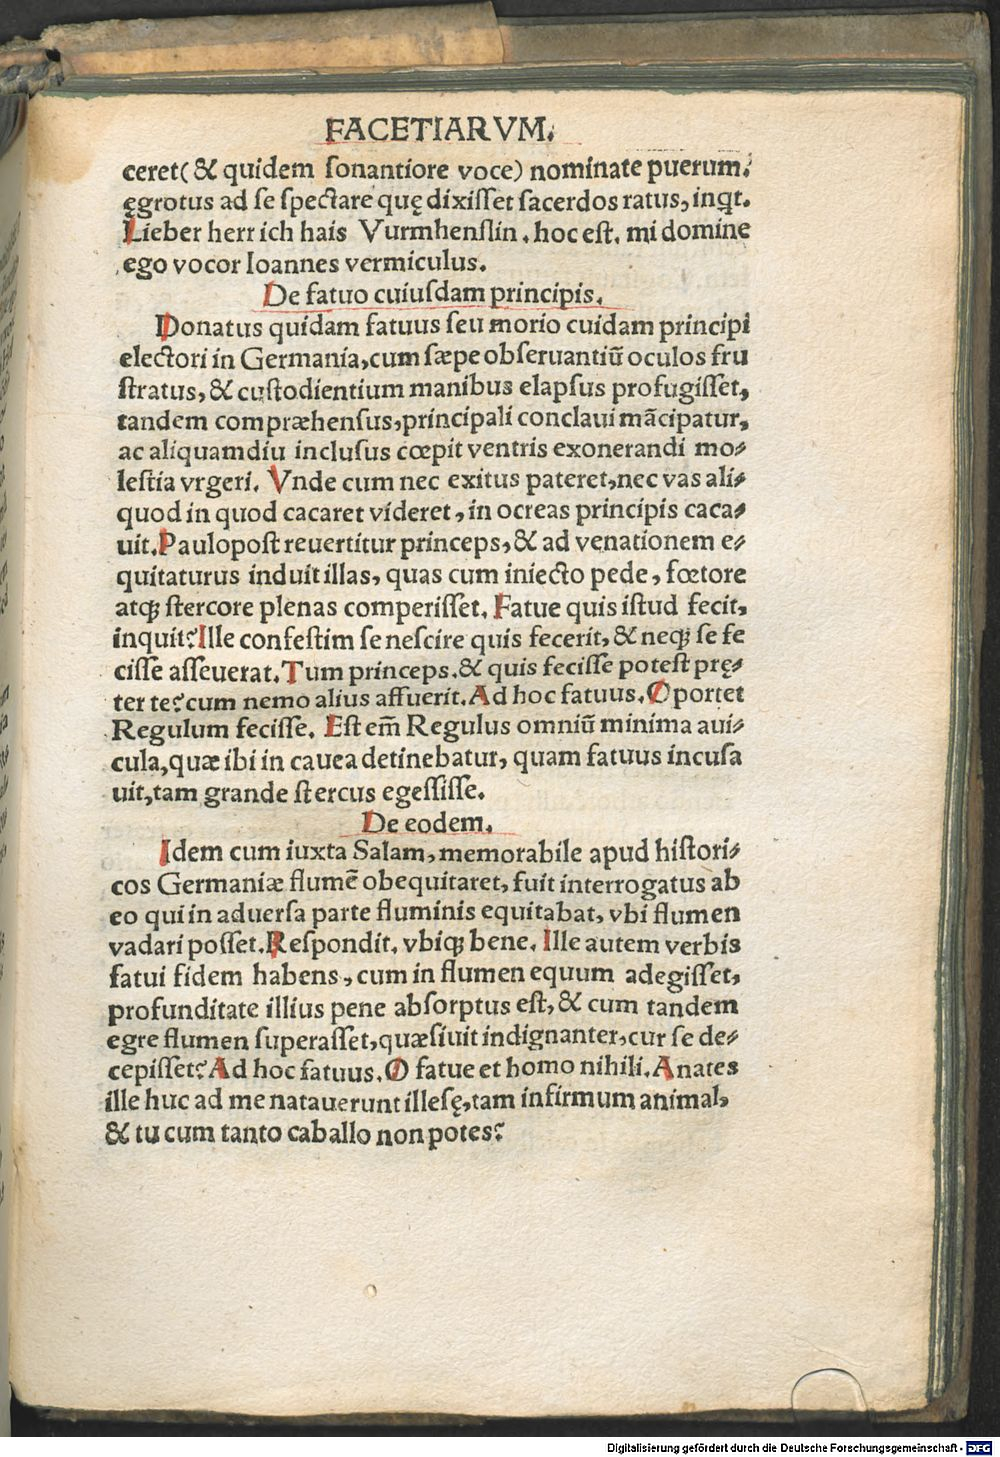 FACETIARVM.
ceret( & quidem ſonantiore voce) nominate puerum.
ęgrotus ad ſe ſpectare quę dixiſſet ſacerdos ratus, inqt.
Lieber herr ich hais Vurmhenſlin. hoc eſt. mi domine
ego vocor Ioannes vermiculus.
De fatuo cuiuſdam principis.
Donatus quidam fatuus ſeu morio cuidam principi
electori in Germania, cum ſæpe obſeruantiū oculos fru
ſtratus, & cuſtodientium manibus elapſus profugiſſet,
tandem compræhenſus, principali conclaui mācipatur,
ac aliquamdiu incluſus cœpit ventris exonerandi mo⸗
leſtia vrgeri. Vnde cum nec exitus pateret, nec vas ali⸗
quod in quod cacaret víderet, in ocreas principis caca⸗
uit. Paulopoſt reuertitur princeps, & ad venationem e⸗
quitaturus induit illas, quas cum iniecto pede, fœtore
atqꝫ ſtercore plenas comperiſſet. Fatue quis iſtud fecit,
inquit? Ille confeſtim ſe neſcire quis fecerit, & neqꝫ ſe fe
ciſſe aſſeuerat. Tum princeps. & quis feciſſe poteſt prę⸗
ter te? cum nemo alius affuerit. Ad hoc fatuus. Oportet
Regulum feciſſe. Eſt em̄ Regulus omniū minima aui⸗
cula, quæ ibi in cauea detinebatur, quam fatuus incuſa
uit, tam grande ſtercus egeſſiſſe.
De eodem.
Idem cum iuxta Salam, memorabile apud hiſtori⸗
cos Germaniæ flumē obequitaret, fuit interrogatus ab
eo qui in aduerſa parte fluminis equitabat, vbi flumen
vadari poſſet. Reſpondit. vbiqꝫ bene. Ille autem verbis
fatui fidem habens, cum in flumen equum adegiſſet,
profunditate illius pene abſorptus eſt, & cum tandem
egre flumen ſuperaſſet, quæſiuit indignanter, cur ſe de⸗
cepiſſet? Ad hoc fatuus. O fatue et homo nihili. Anates
ille huc ad me natauerunt illeſę, tam infirmum animal,
& tu cum tanto caballo non potes?
Digitalisierung gefördert durch die Deutsche Forschungsgemeinschaft - DFG